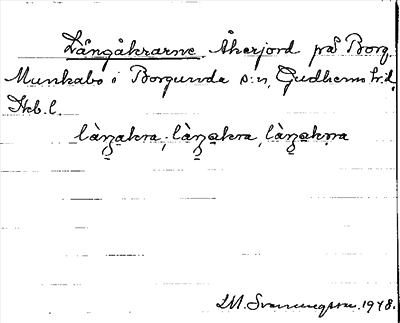 Långåkrarne. Åkerjord på Borg.
Munkabo i Borgunda s:n, Gudhems hd,
Skb. l.
làŋakra, làŋakra, làŋakrra
M. Svenungsson. 1948.